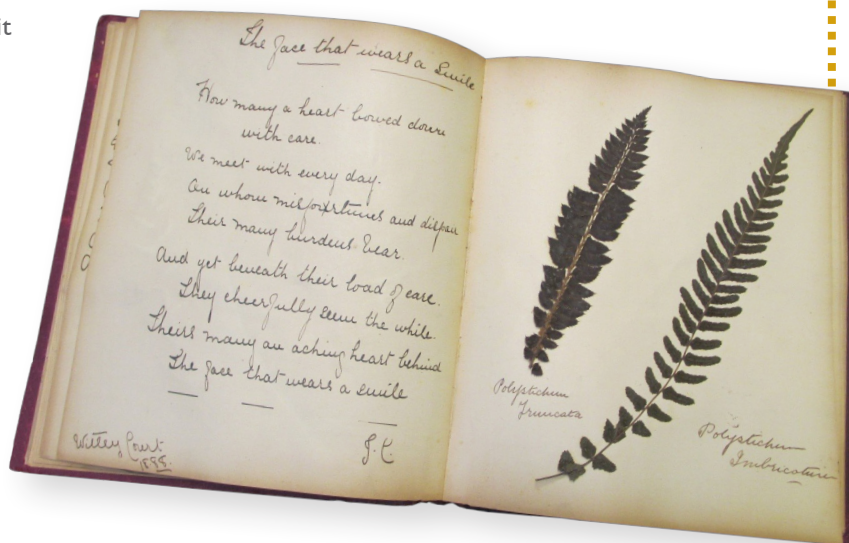 it
The face that wears a Smile
How many a heart bowed down
with care.
We meet with every day.
On whom misfortunes and dispair
Their many burdens bear.
And yet beneath their load of care.
They cheerfully seem the while.
Theirs many an aching heart behind
The face that wears a smile
Witley Court
1898.
Polystichum
Truncata
Polystichum
Imbricatum